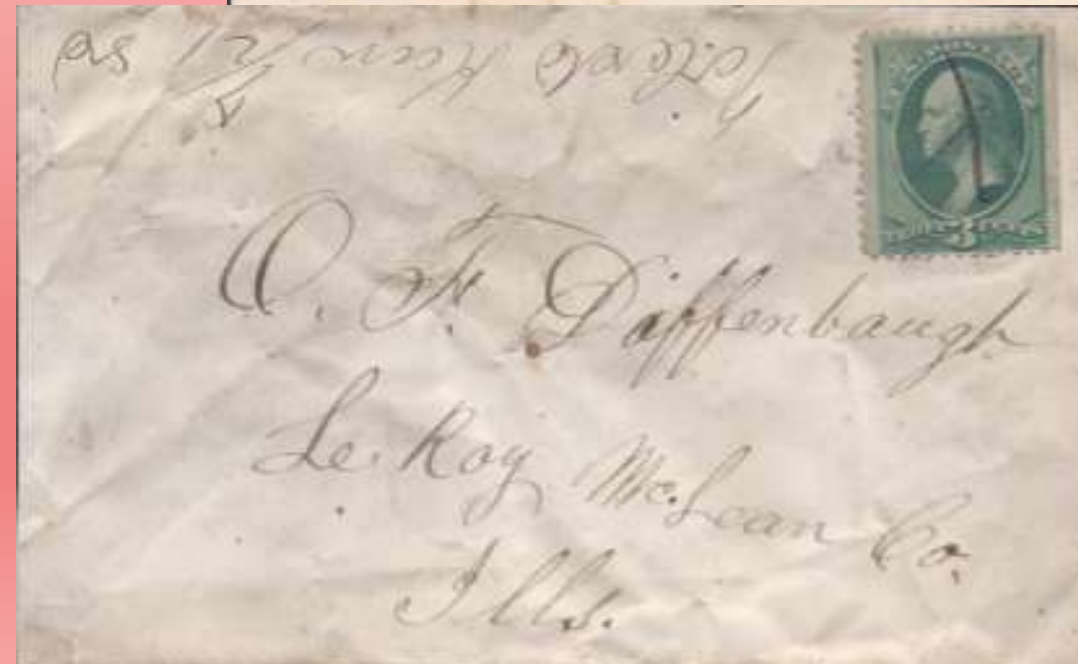 3
O. F. Diffenbaugh
Le.Roy Mc.Lean Co.
Ills.